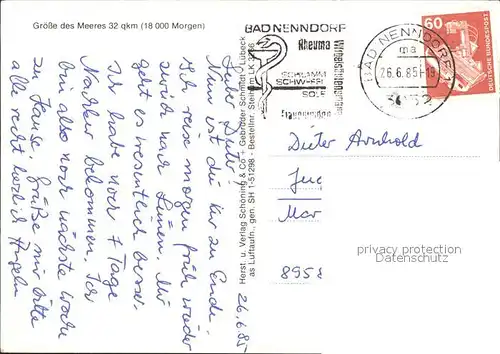 Größe des Meeres 32 qkm (18 000 Morgen)
26.6.85
Lieber Dieter!
Nun ist die Kur zu Ende.
Ich reise morgen früh wieder
zurück nach Lünen. Mir
geht es wesentlich besser.
Ich habe noch 7 Tage
Nachkur bekommen. Ich
bin also noch nächste Woche
zu Hause. Grüße mir bitte
alle recht herzlich
Herst. u. Verlag Schöning & Co + Gebrüder Schmidt, Lübeck
as Luftaufn., gen. SH 1-51298 - Bestellnr.
BAD NENNDORF
Rheuma
Wirbelsäulen
SCHLAMM
SCHWEFEL
SOLE
Frauenleiden
BAD NENNDORF 1
ma
26.6.85-19
3052
60
DEUTSCHE BUNDESPOST
Dieter
8958
AnsichtskartenVersand
Premium